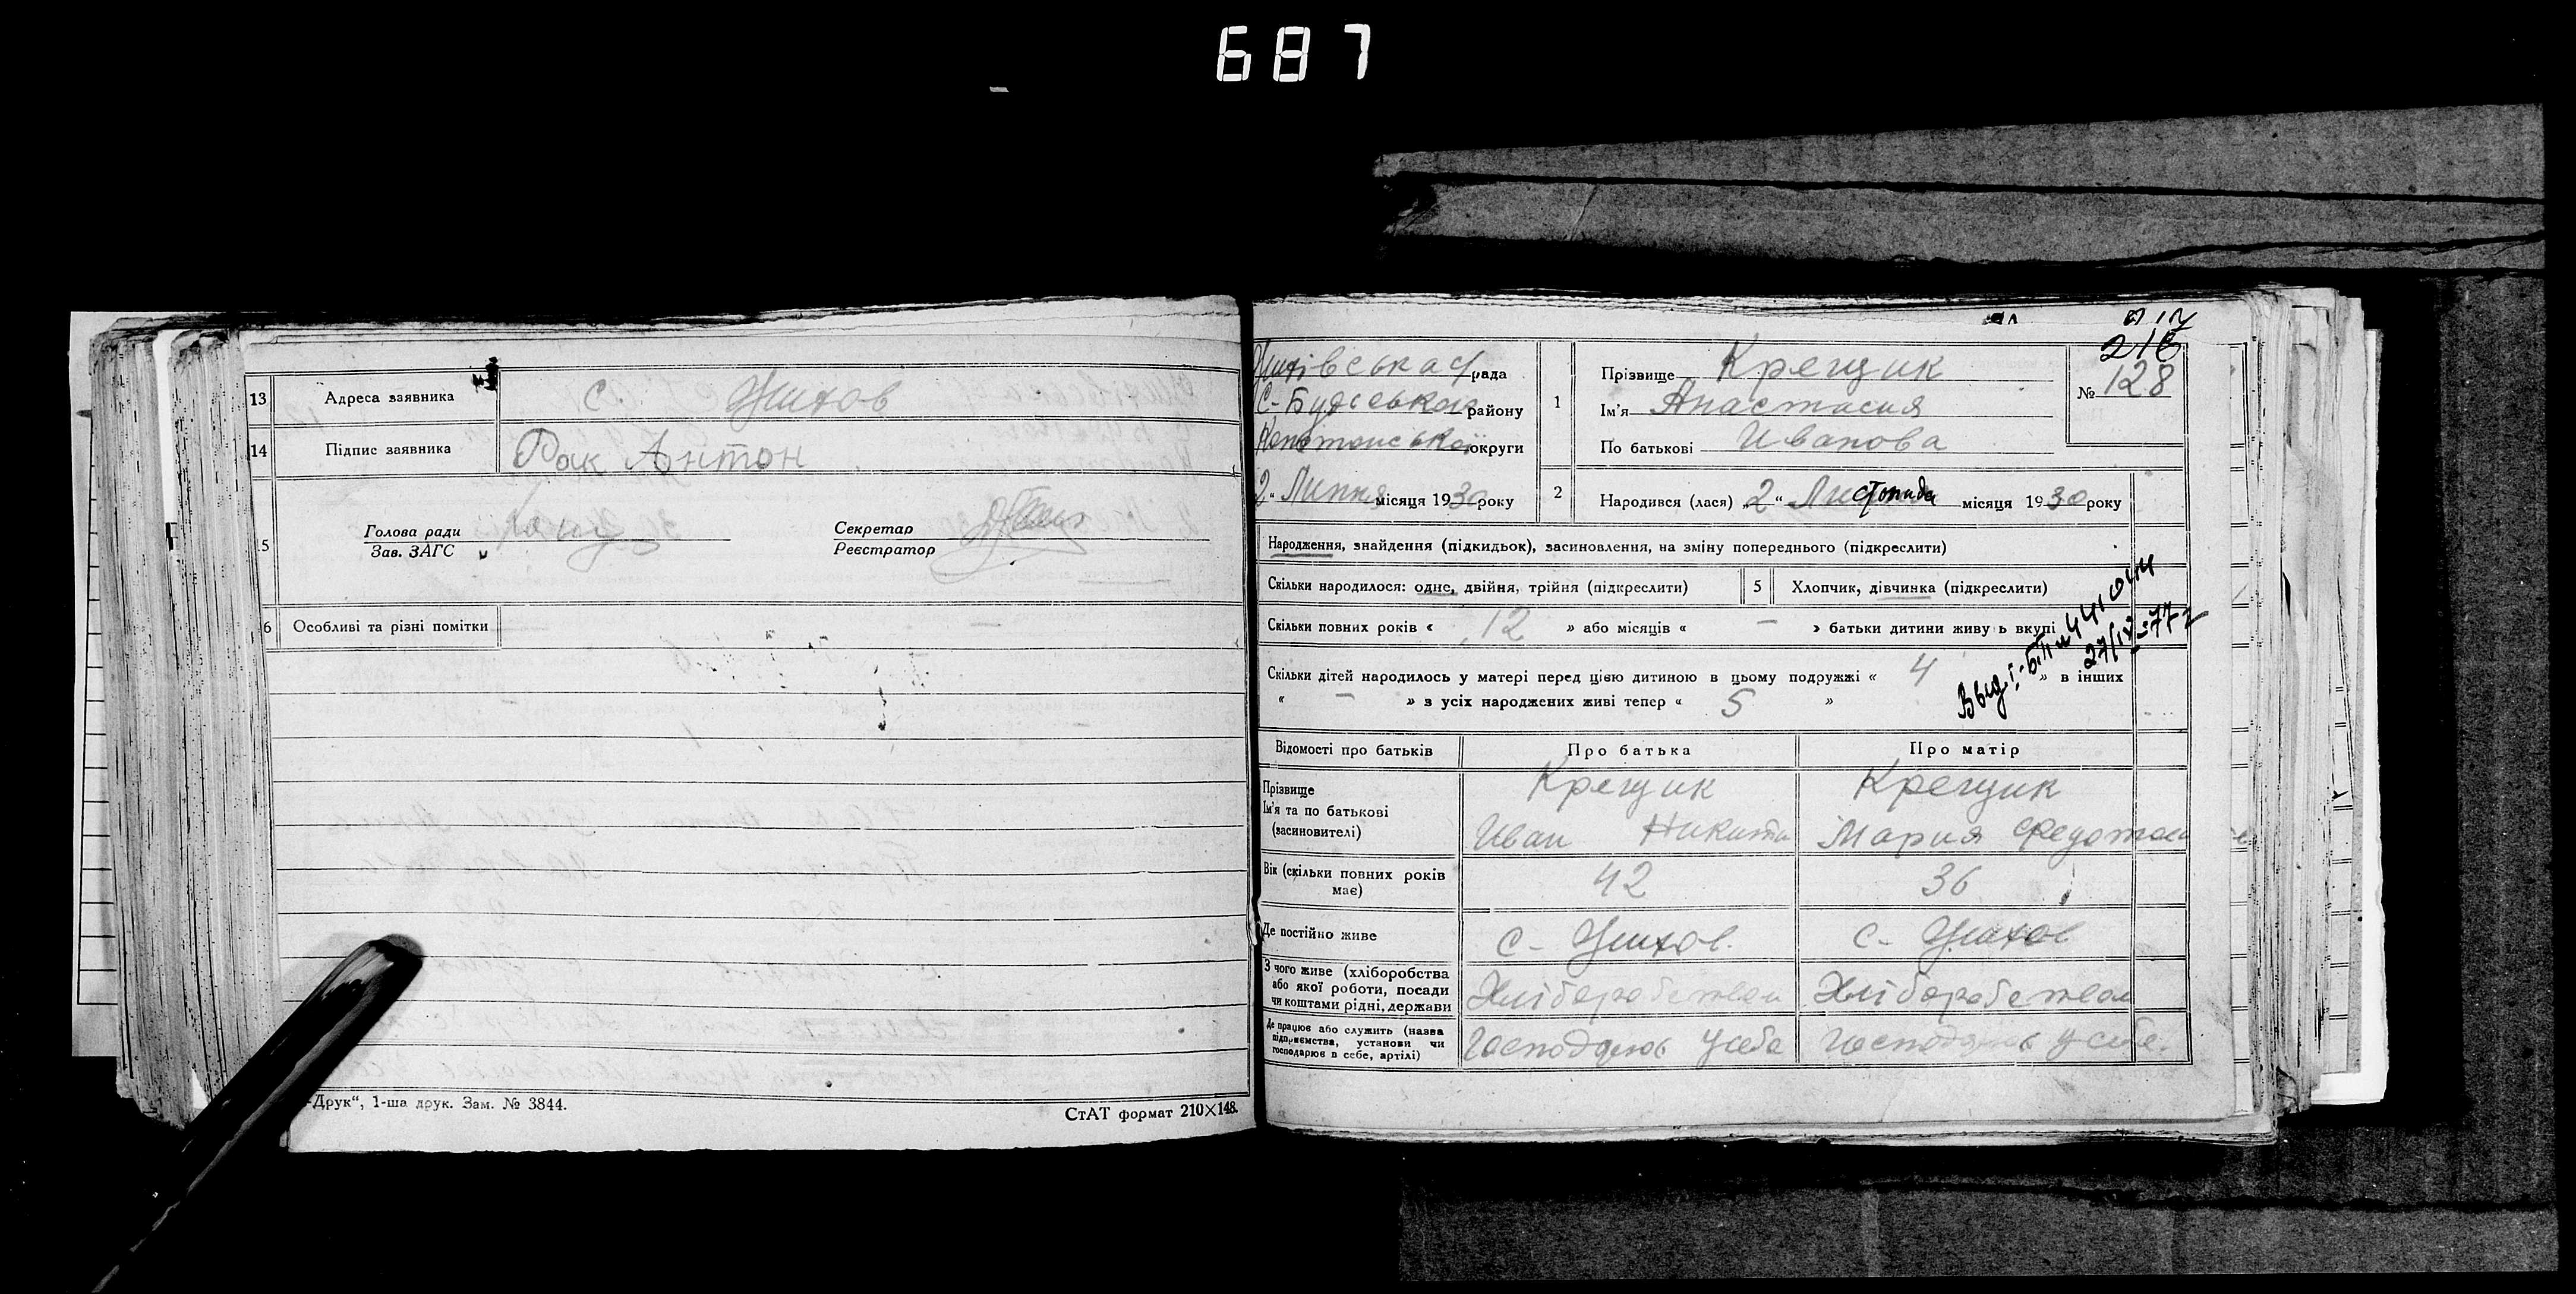 687
13 Адреса заявника с. Жихов
14 Підпис заявника Рак Антон
5 Голова ради
Зав. ЗАГС
Секретар
Реєстратор
6 Особливі та різні помітки
-Друк“, 1-ша друк. Зам. № 3844.
СтАТ формат 210×148.
216
Жихівська с/рада
С-Будської району
Конотопської округи
2 “ Липня місяця 1930 року
1 Прізвище Крещик
Ім'я Анастасия
По батькові Иванова
№ 128
2 Народився (лася) „2“ Листопада місяця 1930 року
Народження, знайдення (підкидьок), засиновлення, на зміну попереднього (підкреслити)
Скільки народилося: одне, двійня, трійня (підкреслити) 5 Хлопчик, дівчинка (підкреслити)
Скільки повних років « 12 » або місяців « — » батьки дитини живуь вкупі
Скільки дітей народилось у матері перед цією дитиною в цьому подружжі « 4 » в інших
« — » з усіх народжених живі тепер « 5 »
Выд. І-БП № 441044
27/IV-77г
Відомості про батьків Про батька Про матір
Прізвище Крещик Крещик
Ім'я та по батькові
(засиновителі) Иван Никита Мария Федотов
Вік (скільки повних років
має) 42 36
Де постійно живе с- Жихов. с- Жихов
З чого живе (хліборобства
або якої роботи, посади
чи коштами рідні, держави Хліборобством Хліборобством
Де працює або служить (назва
підприємства, установи чи
господарює в себе, артілі) Господарює у себе Господарює у себе.